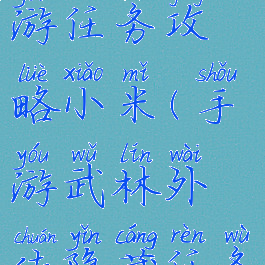 游任务攻
lüè xiǎo mǐ shǒu
略小米(手
yóu wǔ lín wài
游武林外
chuán yǐn cáng rèn wù
传隐藏任务